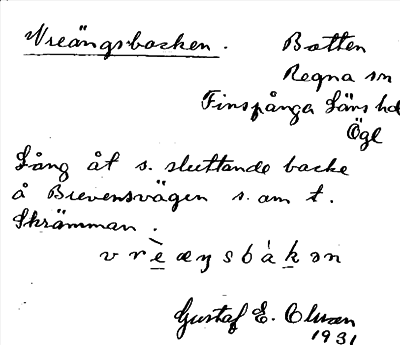 Vreängsbacken.
Botten
Regna sn
Finspånga Läns hd
Ögl
Lång åt s. sluttande backe
å Brevensvägen s. om t.
Skrämman.
vrèæŋsbàkən
Gustaf E. Olsson
1931